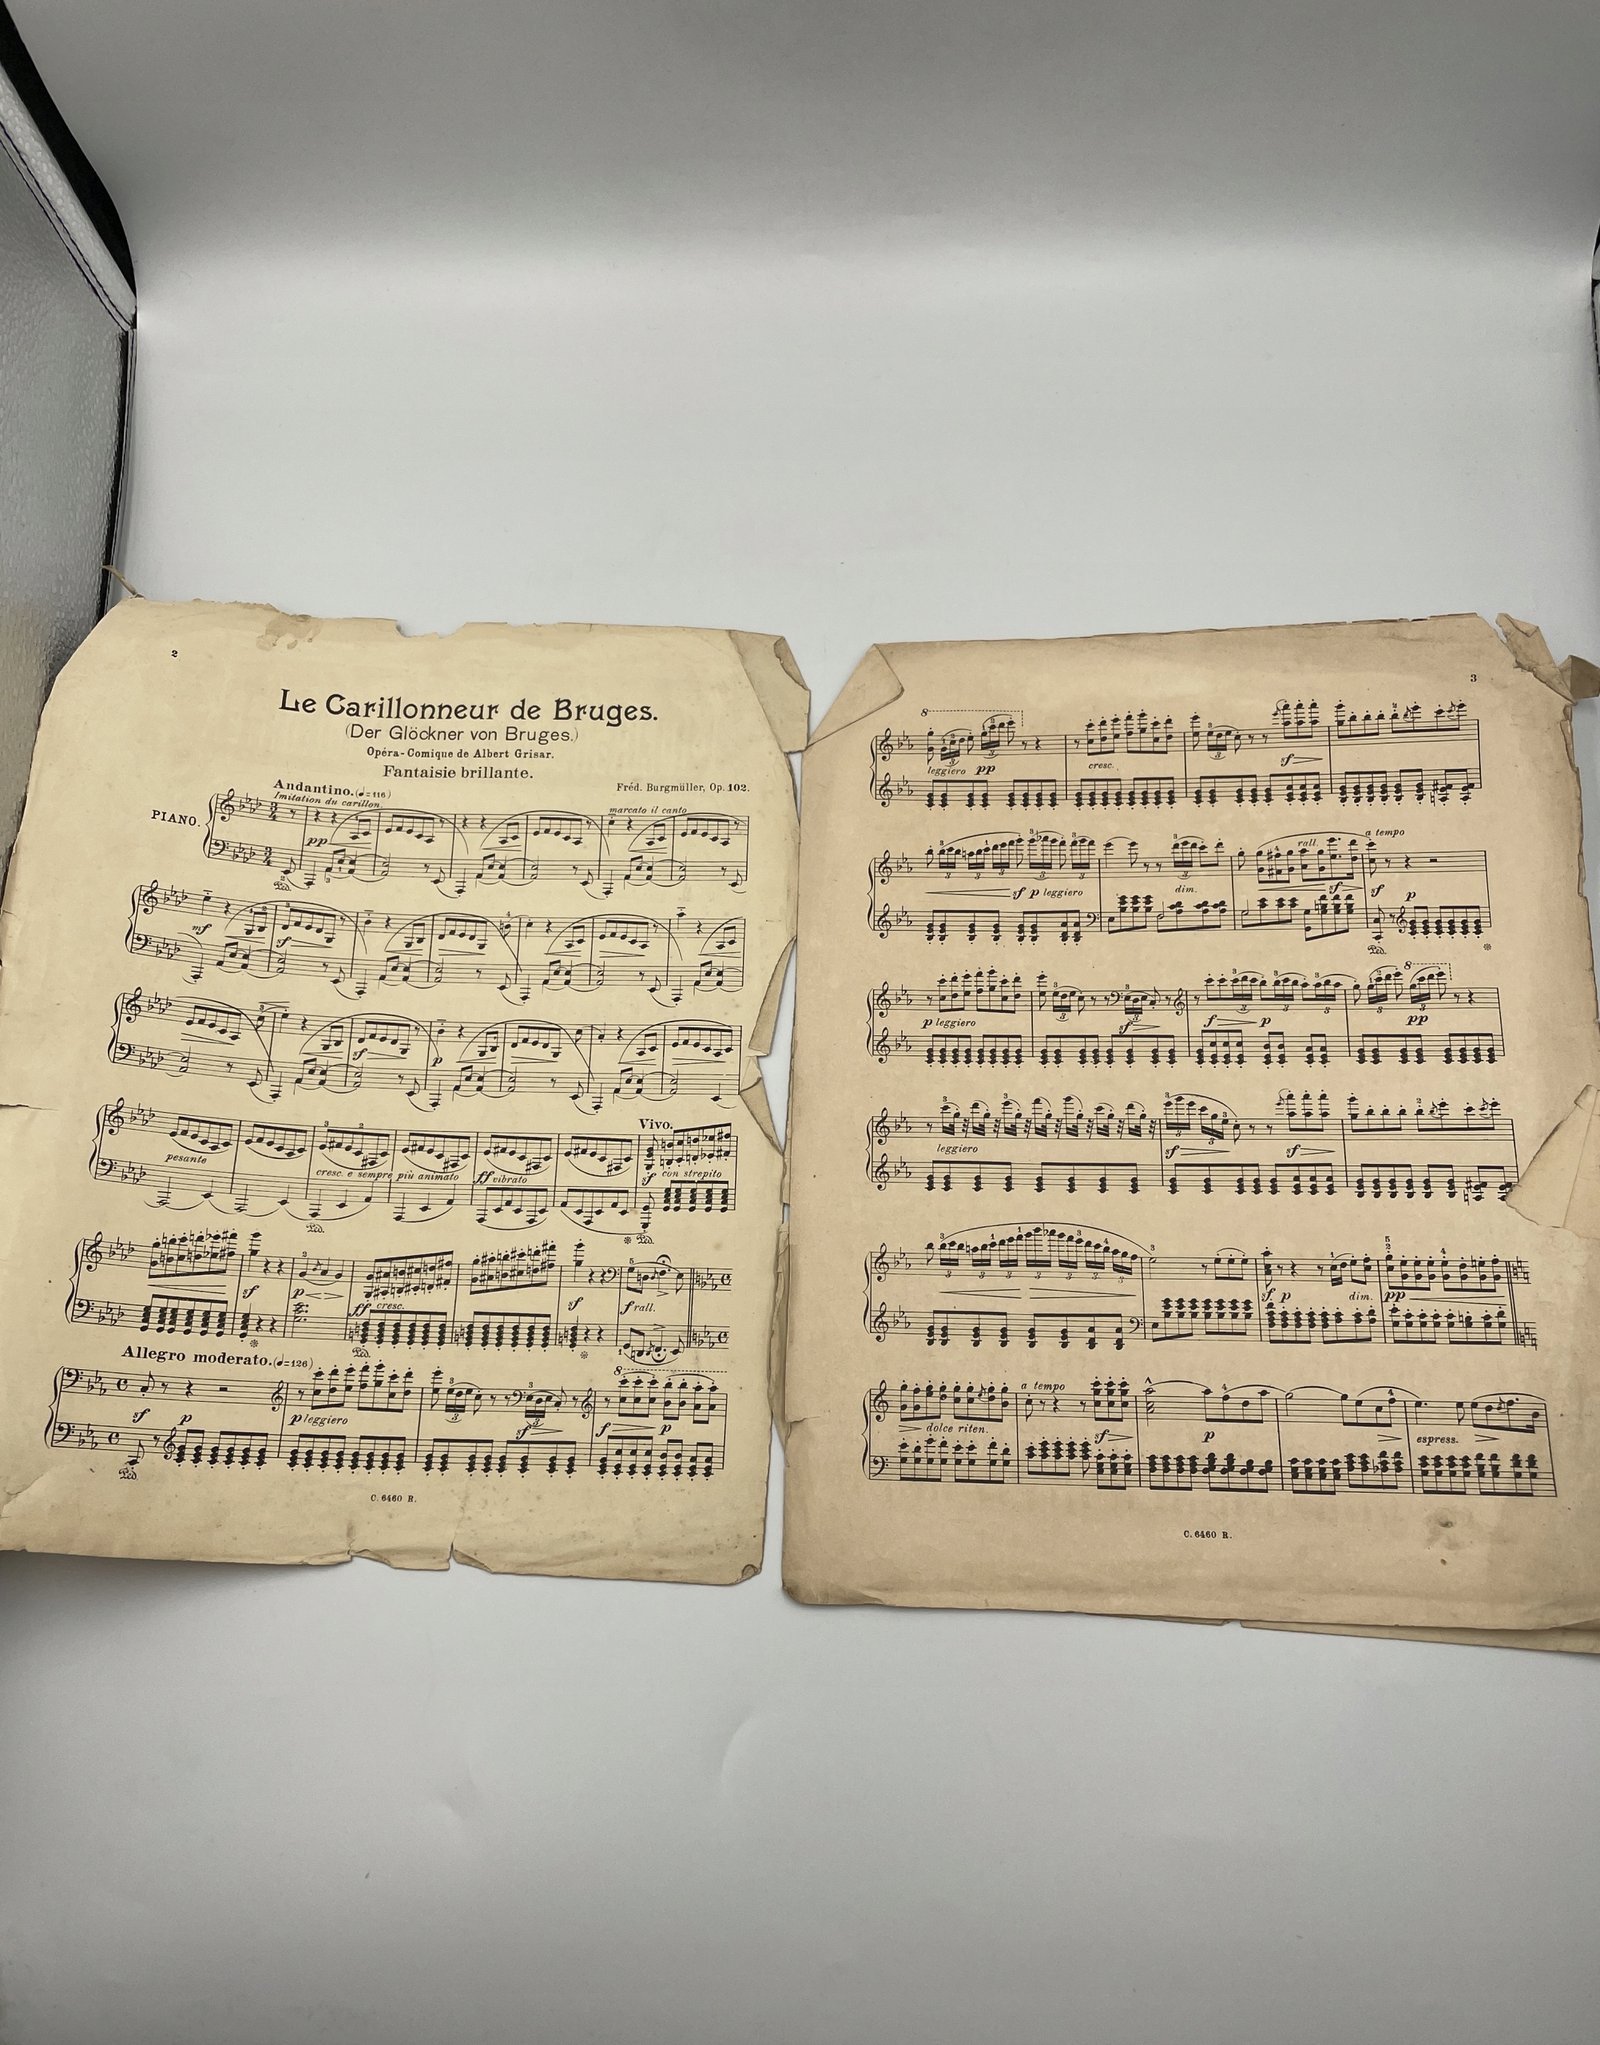 2
Le Carillonneur de Bruges.
(Der Glöckner von Bruges.)
Opéra-Comique de Albert Grisar.
Fantaisie brillante.
Andantino. (♩=116)
Fréd. Burgmüller, Op. 102.
Imitation du carillon.
marcato il canto
PIANO.
pp
Ped.
mf
sf
sf
p
Vivo.
pesante
cresc. e sempre più animato
ff vibrato
sf con strepito
Ped.
Ped.
sf
p
ff cresc.
sf
f rall.
Ped.
Allegro moderato. (♩=126)
8
sf
p
p leggiero
sf
f
p
Ped.
C. 6460 R.
3
8
leggiero pp
cresc.
sf
rall.
a tempo
sf p leggiero
dim.
sf
sf
p
Ped.
8
p leggiero
sf
f
p
pp
leggiero
sf
sf
sf p
dim.
pp
a tempo
dolce riten.
sf
p
espress.
C. 6460 R.